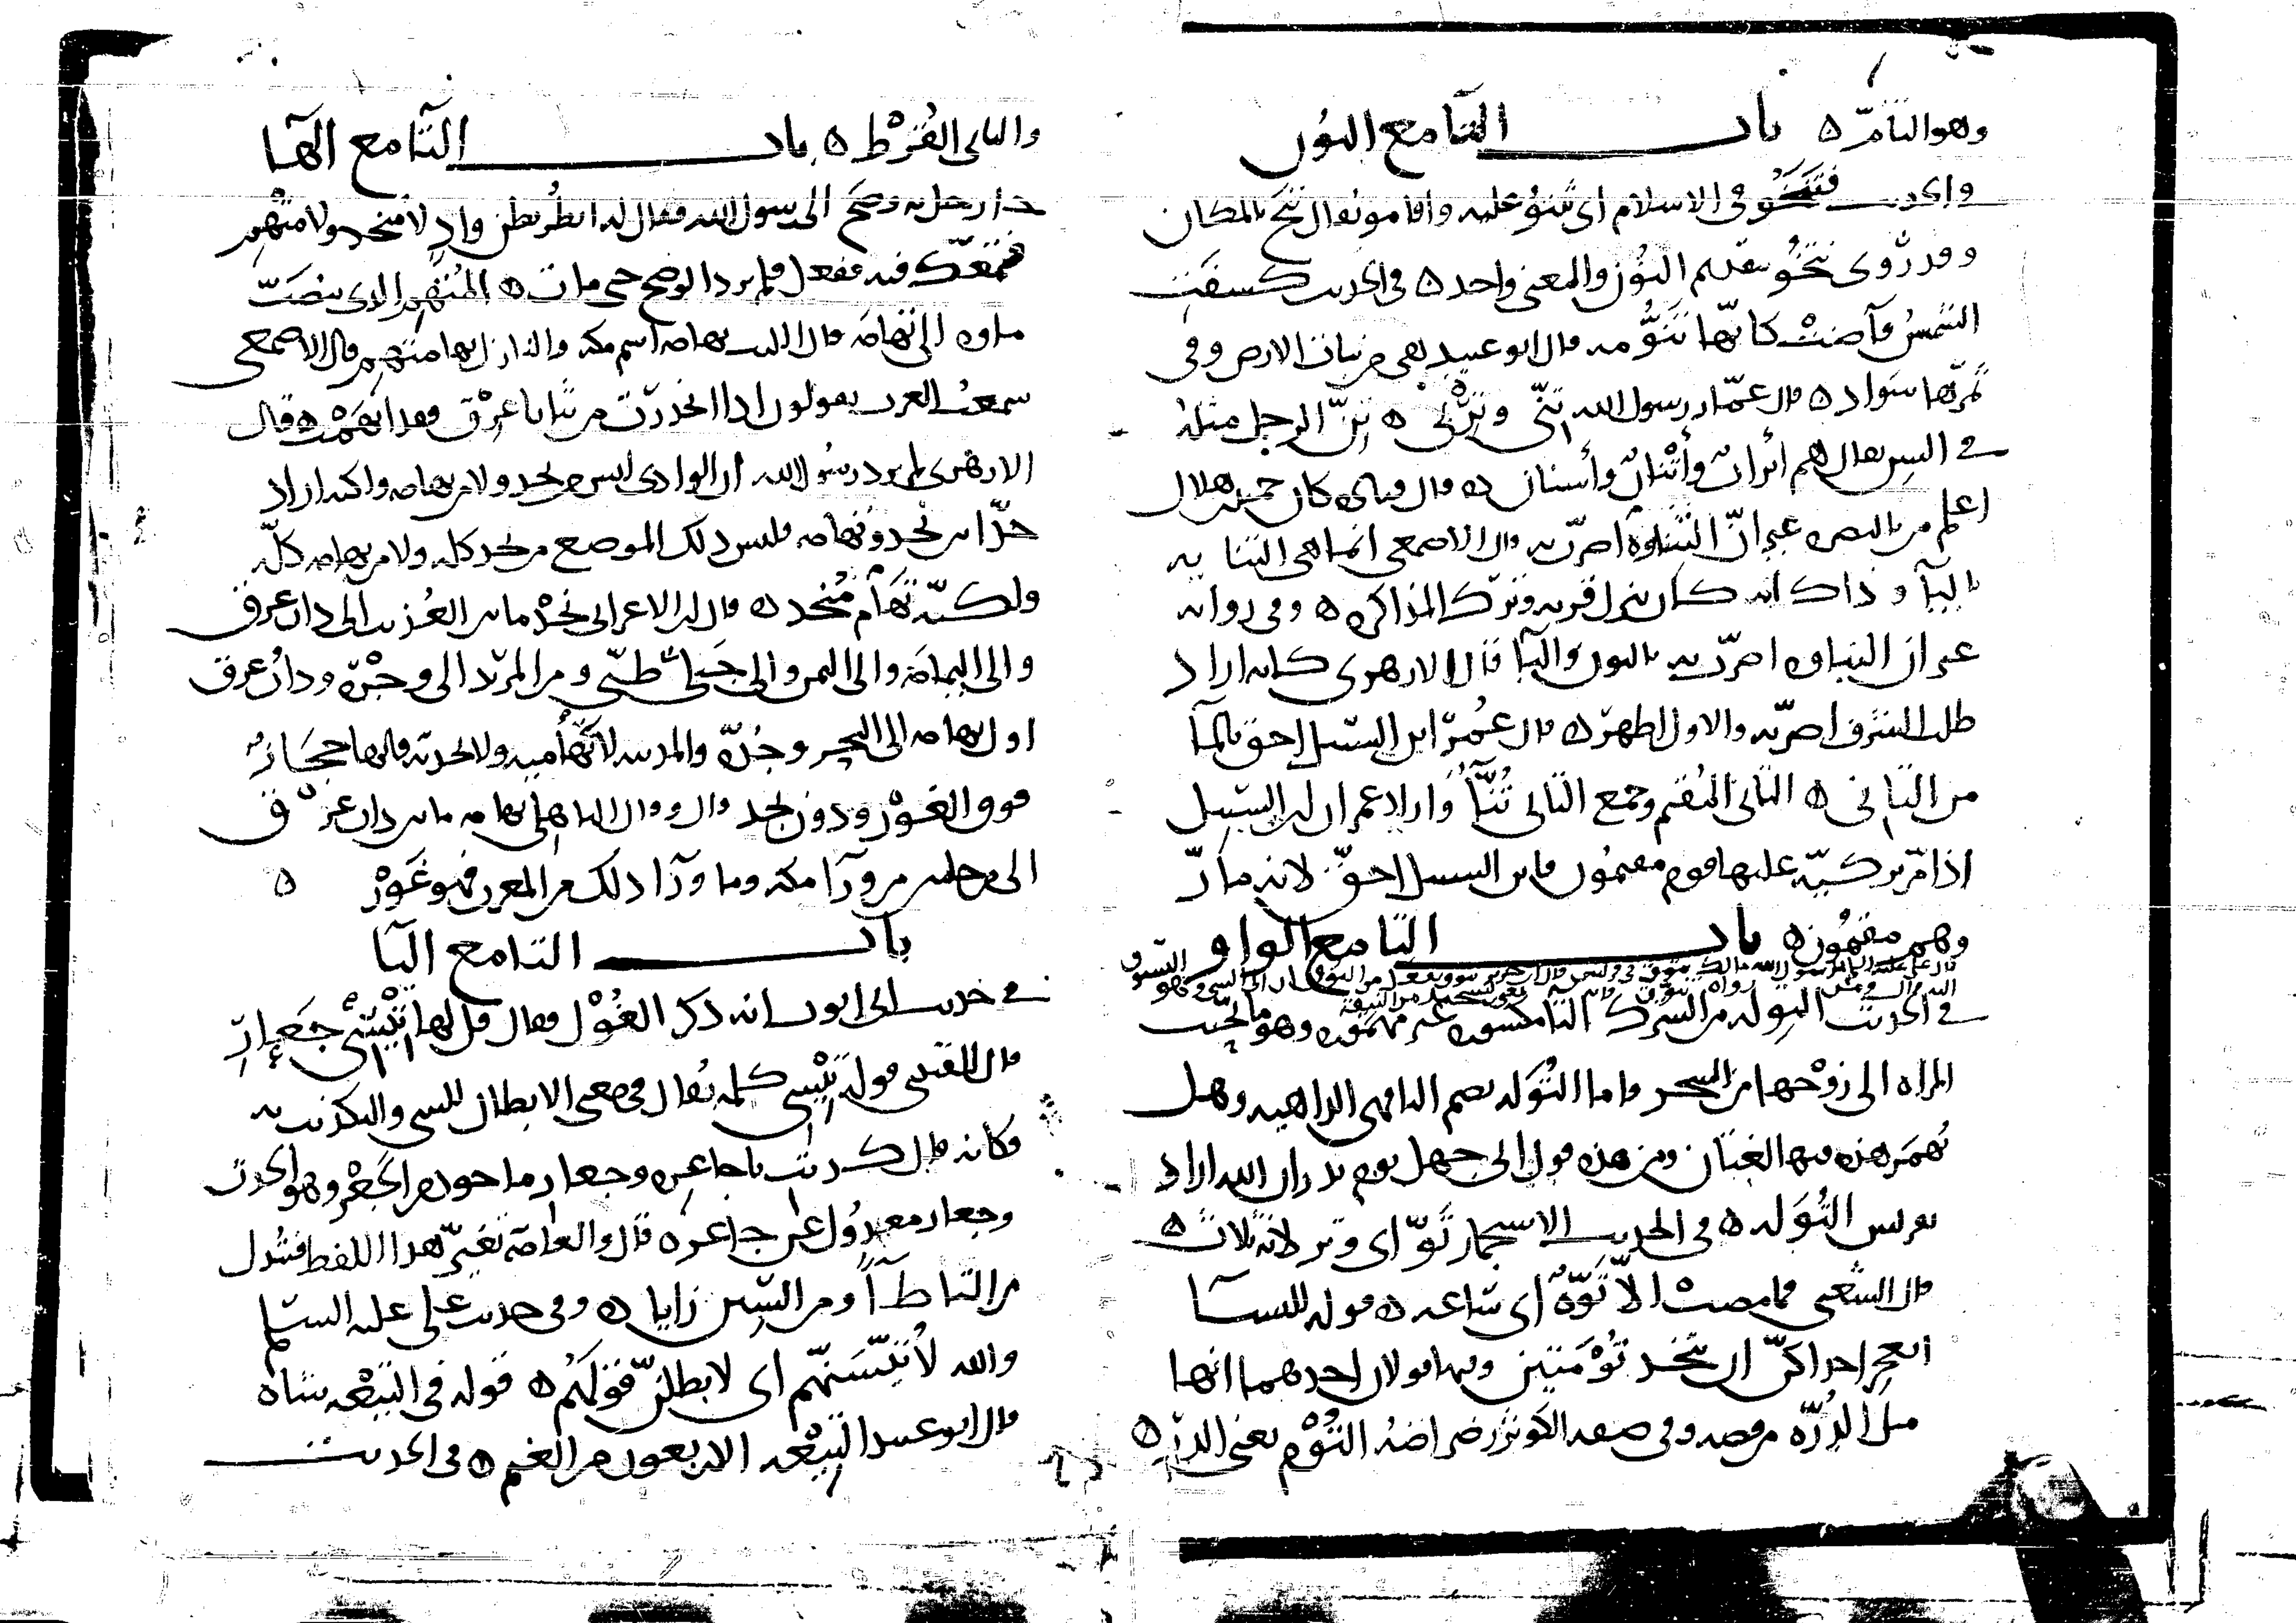 وهو التامّ ه باب التاء مع النون
وفي الحديث فتنخو في الاسلام اي ثبتوا عليه واقاموا يقال تنخ بالمكان
وقد رُوي نتخو بتقديم النُون والمعنى واحد ه في الحديث كسفت
الشمسُ وآضتْ كانّها تَنُّومه قال ابو عبيد هي من نبات الارض وفي
ثمرها سواد ه قال عمّار ان رسول الله تِنّي وتِرْبي ه تِنّ الرجل مثلهُ
في السن يقال هم أترابٌ وأتْنانٌ وأسنان ه قال قتادة كان حميد بن هلال
اعلم من بالبصره غير انّ التناوه اضرّت به قال الاصمعي انما هي التنايه
باليآء وذاك انه كان ينزل قريه وترك المذاكره ه وفي روايه
غير ان النباوه اضرّت به بالنون والبآء قال الازهري كانه اراد
طلب الشرف اضرّ به والاول اظهر ه قال عُمر ابن السبيل احق بالمآء
من التاني ه التاني المُقيم وجمع التاني تُنّآء واراد عمر ان ابن السبيل
اذا مرّ بركيّه عليها قوم مقيمُون فابن السبيل احقّ لانه مارّ
وهم مقيمُون ه باب التاء مع الواو
في الحديث التِوله من الشرك التا مكسوره غير مهموزه وهو ما يُحبّب
المراه الى زوْجها من السحر واما التُوَله بضم التا فهي الداهيه وهل
تُهمز هذه فيها لغتان ومن هذه قول ابي جهل يوم بدر ان الله اراد
بقريش التُوَله ه في الحديث الاستجمار تَوّ اي وتر لانه ثلاث ه
قال الشعبي فما مضت الّا تَوّهٌ اي ساعه ه قوله للنسآء
اتعجز احداكنّ ان تتخذ تُوْمَتين وفيها قولان احدهما انها
مثل الدُرّه من فضه وفي صفه الكوثر رضراضه التُوْم يعني الدرّ ه
والثاني القُرْط ه باب التاء مع الهآء
جا رجل به وضح الى رسول الله فقال له انظر بطن وادٍ لا منجد ولا متهم
فتمعّك فيه ففعل فلم يزد الوضح حتى مات ه المُتهم الذي ينصبّ
ماوه الى تِهامَه قال الليث تهامه اسم مكه والنازل بها متهم قال الاصمعي
سمعتُ العرب يقولون اذا انحدرت من ثنايا عِرْق فقد اتهَمْت ه قال
الازهري لم يرد رسُول الله ان الوادي ليس من نجد ولا من تهامه ولكنه اراد
حدّا بين نجد وتهامه فليس ذلك الموضع من نجد كله ولا من تهامه كلّه
ولكنّه تَهَامٌ مُنجد ه قال ابن الاعرابي نجْد ما بين العُذيب الى ذات عرق
والى اليمامَه والى اليمن والى جَبلَي طَيّء ومن المربد الى وجْره وذاتُ عرق
اول تهامه الى البحر وجُدّه والمدينه لا تهاميه ولا نجديّه فانها حجازٌ
فوق الغَوْر ودون نجد قال وقال الباهلي تهامه ما بين ذات عرْق
الى مرحلتين من ورآء مكه وما ورآء ذلك من المغرب فهو غَوْر ه
باب التاء مع اليآء
في حديث ابي ايوب انه ذكر الغُوْل فقال قل لها تِيْسِي جَعارِ
قال القتبي قوله تِيْسي كلمه تُقال في معنى الابطال للشي والتكذيب به
فكانه قال كذبت يا جاعره وجعار ماخوذه من الجَعْر وهو الحدث
وجعار معدُول عن جاعره قال والعامّه تغيّر هذا اللفظ فتبدل
من التا طآءً ومن السين زايا ه وفي حديث علي عليه السّلم
والله لأُتَيّسَنّهم اي لابطلنّ قوْلَهُم ه قوله في التيْعه شاه
قال ابو عبيد التيْعه الاربعون من الغنم ه في الحديث